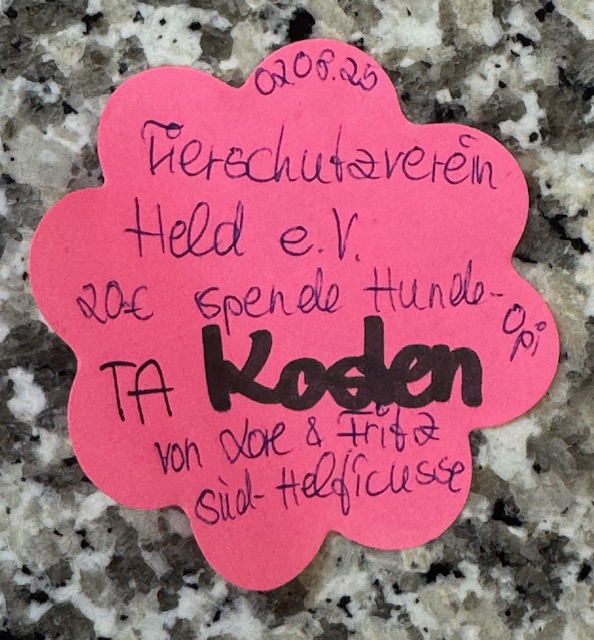 0208.25
Tierschutzverein
Held e.V.
20€ spende Hunde-
Opi
TA Kosten
von Lore & Fritz
Süd-